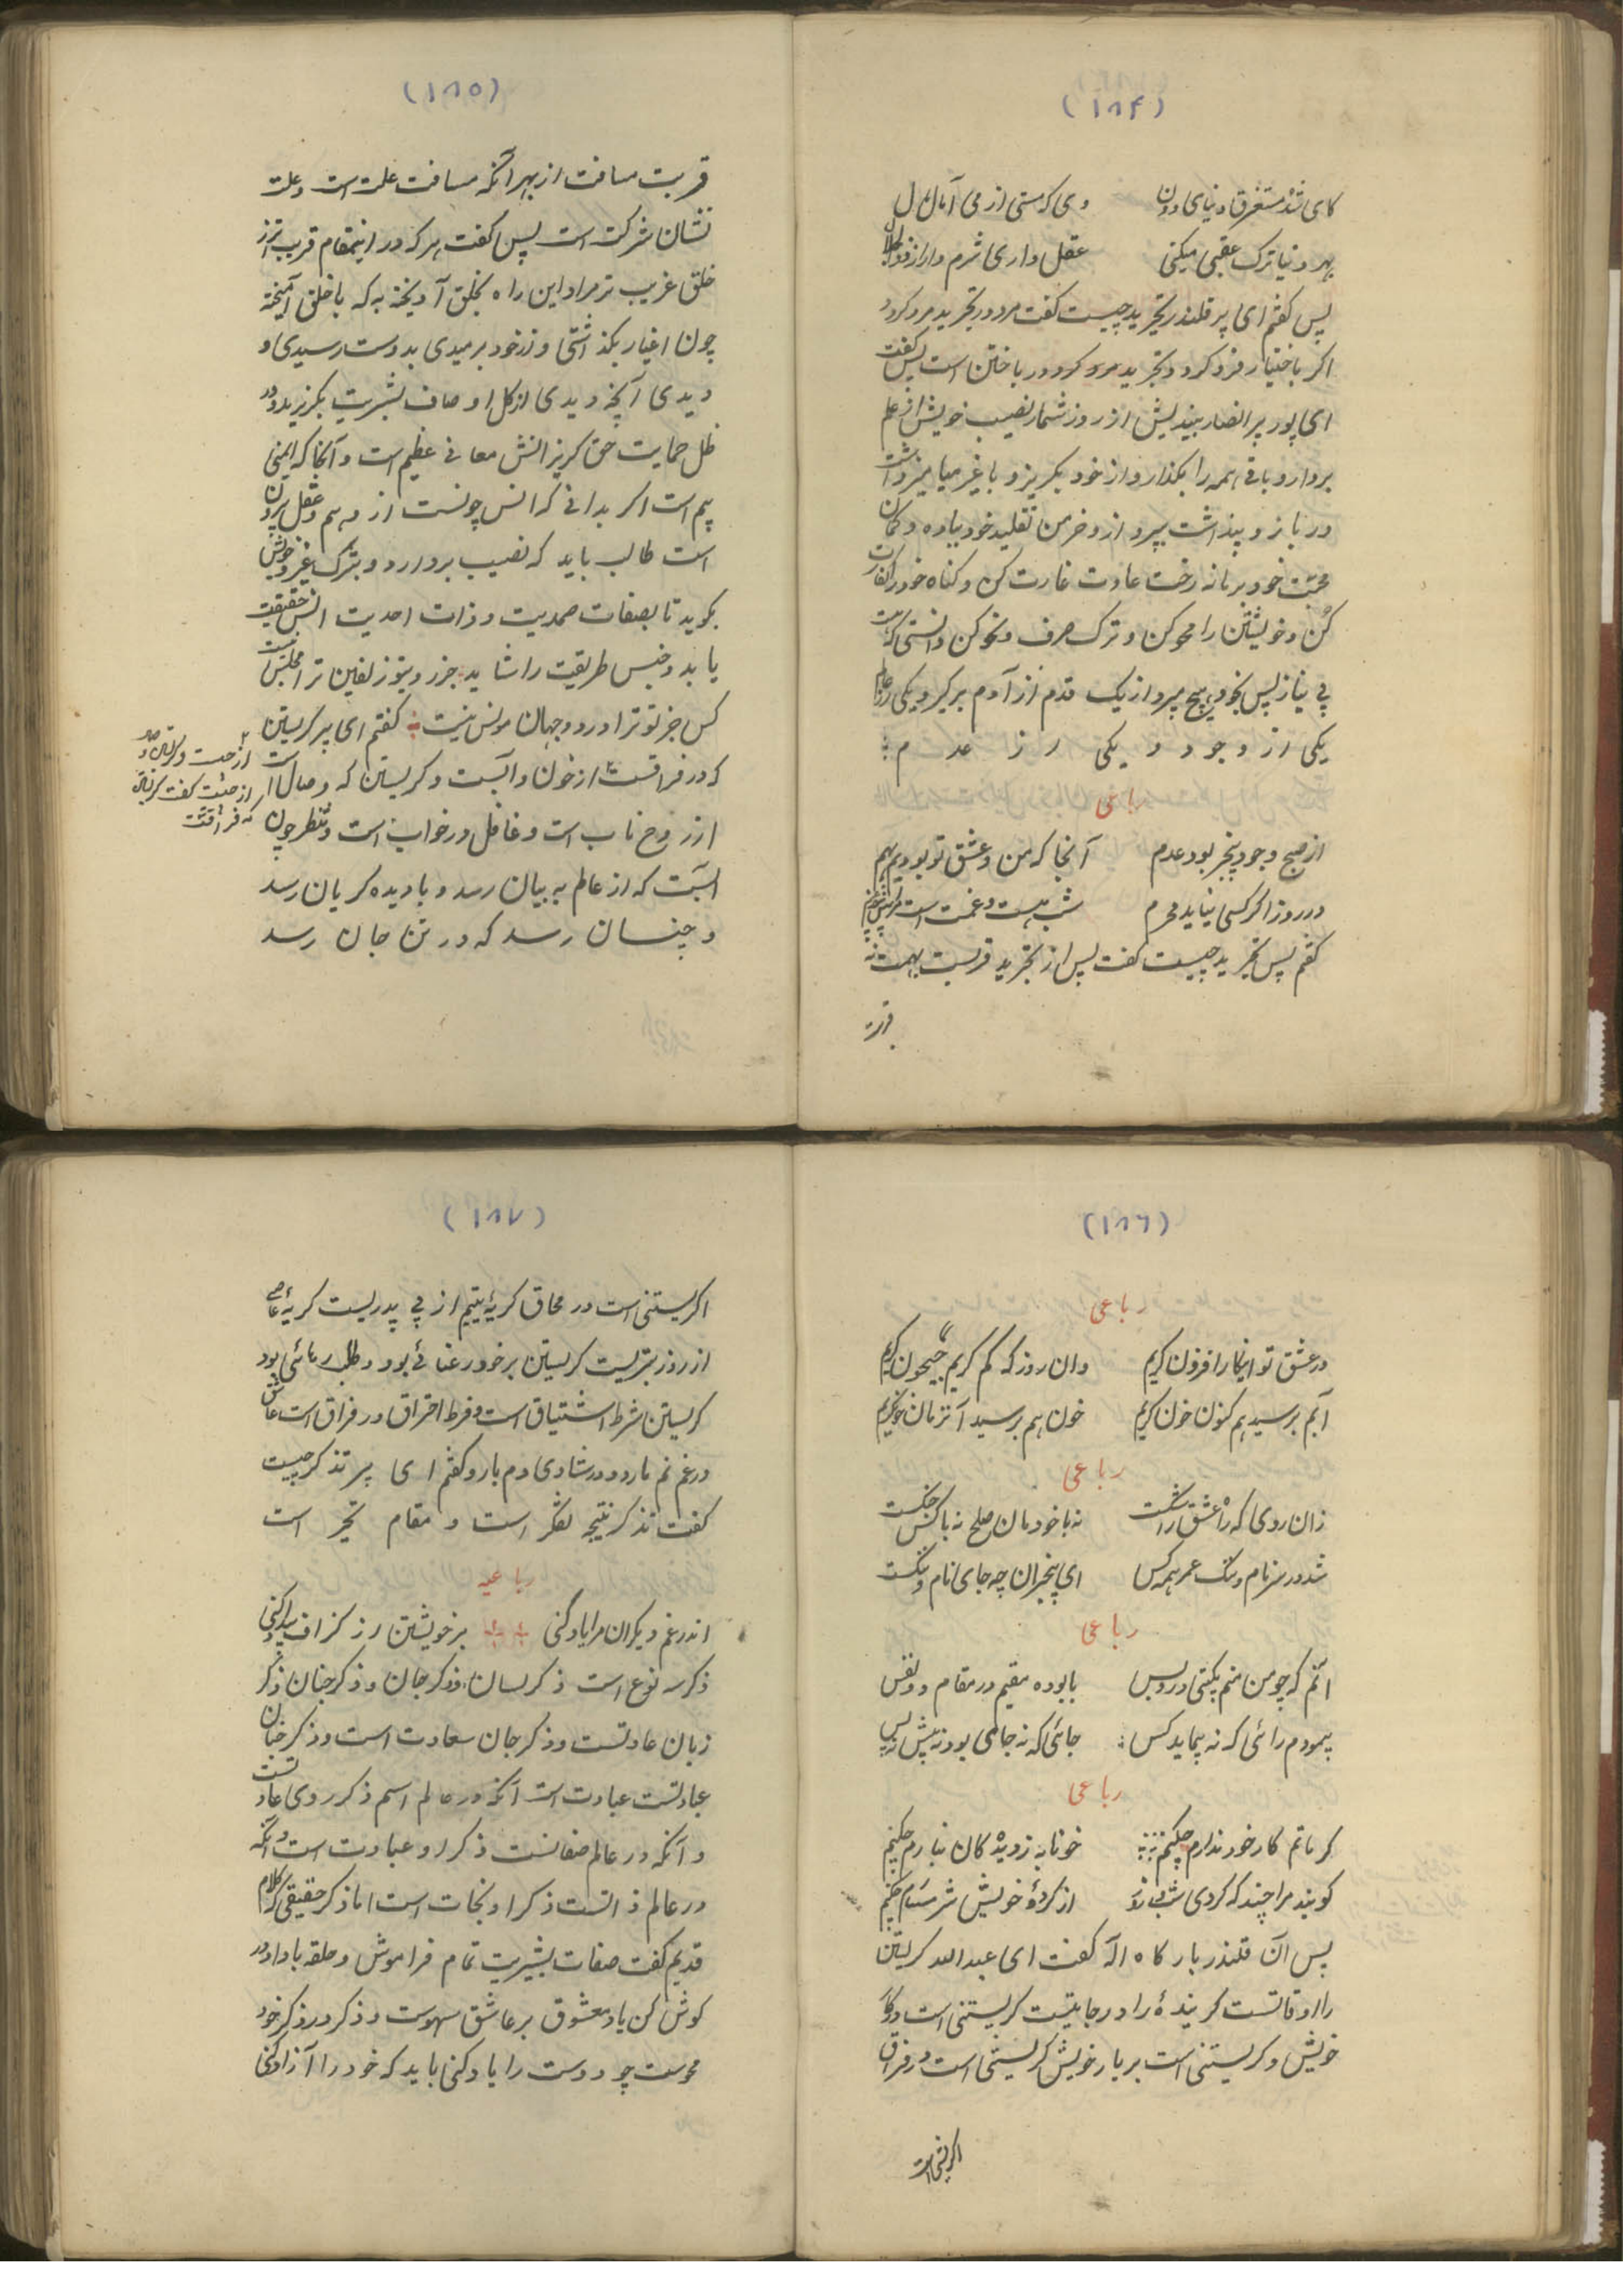 (۱۸۴)
کای شده مستغرق دنیای دون وی که مستی از می آمال مال
بهر دنیا ترک عقبی میکنی عقل داری شرم دار از ذوالجلال
پس گفتم ای پیر قلندر تجرید چیست گفت مرد در تجرید مرد کرد
اکر باختیار فرد کرد و تجرید مرد کرد در باختن است پس گفت
ای پور پیر انصار بیندیش از روز شمار نصیب خویش از علم
بردار و باقی همه را بکذار و از خود بکریز و با غیر میامیز
در باز و پنداشت بپرد از و خرمن تقلید خود بباد ده و کمان
محبت خود برنانه رخت عادت غارت کن و کناه خود را کفارت
کن و خویشتن را محو کن و ترک صرف و نحو کن دانستی که
پی نیاز پس بخود هیچ مپرداز یک قدم از آدم برگیر و یکی از عالم
یکی از وجود و یکی از عدم
رباعی
از صبح وجود بیخبر بود عدم آنجا که من و عشق تو بودیم بهم
در روز اکر کسی نیاید محرم شب هست و غمت است مرا
گفتم پس تجرید چیست گفت پس از تجرید قربت بهمت نه
قربت
(۱۸۵)
قربت مسافت از بهر آنکه مسافت علت است و علت
نشان شرکت است پس گفت هر که در اینمقام قریب تر از
خلق غریب تر مراد این راه بخلق آویخته به که با خلق آمیخته
چون اغیار بکذاشتی و از خود برمیدی بدوست رسیدی و
دیدی آنچه دیدی از کل اوصاف بشریت بکریزید و در
ظل حمایت حق کریز انش معانی عظیم است و آنجا که ایمنی
بیم است اکر بدانی که انس چونست از وهم و عقل برون
است طالب باید که نصیب بردارد و بترک غیر و خویش
بگوید تا بصفات صمدیت و ذات احدیت انس حقیقت
یابد و جنس طریقت را شاید جز روی تو زلفین ترا مجلس نیست
کس جز تو ترا در دو جهان مونس نیست گفتم ای پیر کریستن
که در فراقست از خون و آبست و کریستن که وصال است
از روح ناب است و غافل در خواب است و منظر چون
آبست که از عالم به بیان رسد و با دیده کریان رسد
و چنسان رسد که در تن جان رسد
(۱۸۶)
رباعی
در عشق تو اینجا را افزون کریم وان روز که کم کریم جیحون کریم
آبم برسید هم کنون خون کریم خون هم برسید آنزمان چون کریم
رباعی
زان روی که راه عشق راه تنگست نه با خودمان صلح نه با کس جنگست
شد در سر نام و ننک عمر همه کس ای بیخبران چه جای نام و ننگست
رباعی
آنم که چو من منم بکیتی در و بس بابوده مقیم در مقام دو نفس
پیمودم رائی که نه پیماید کس جائی که نه جای بود نه پیش نه پس
رباعی
کر ماتم کار خود ندارم چکنم خونابه ز دیده کان نبارم چکنم
کویند مرا چند که کردی شب و روز از کردهٔ خویش شرمسارم چکنم
پس آن قلندر بارگاه اله گفت ای عبدالله کریستن
را اوقاتست کرینده را در جانبتیست کریستنی است در کار
خویش و کریستنی است بر یار خویش کریستنی است در فراق
اکریستنی است
(۱۸۷)
اکریستنی است در محاق کریهٔ یتیم از پی پدریست کریهٔ عاصی
از روز بتریست کریستن بر خود رعنائی بود و طلب رهائی بود
کریستن شرط اشتیاق است و فرط احتراق در فراق است عاشق
در غم نم بارد و در شادی دم بارد گفتم ای پیر تذکر چیست
گفت تذکر نتیجه تفکر است و مقام تحیر است
رباعیه
اندر غم دیکران مرا یاد کنی بر خویشتن از کزاف بیداد کنی
ذکر سه نوع است ذکر لسان و ذکر جان و ذکر جنان ذکر
زبان عادتست و ذکر جان سعادت است و ذکر جنان
عبادتست عبادت است آنکه در عالم اسم ذکر روی عادتست
و آنکه در عالم صفاتست ذکر او عبادت است و آنکه
در عالم ذاتست ذکر او نجات است اما ذکر حقیقی که کلام
قدیم گفت صفات بشیریت تمام فراموش و حلقه با داد در
کوش کن یاد معشوق بر عاشق سهوست و ذکر در ذکر خود
محوست چو دوست را یاد کنی باید که خود را آزاد کنی